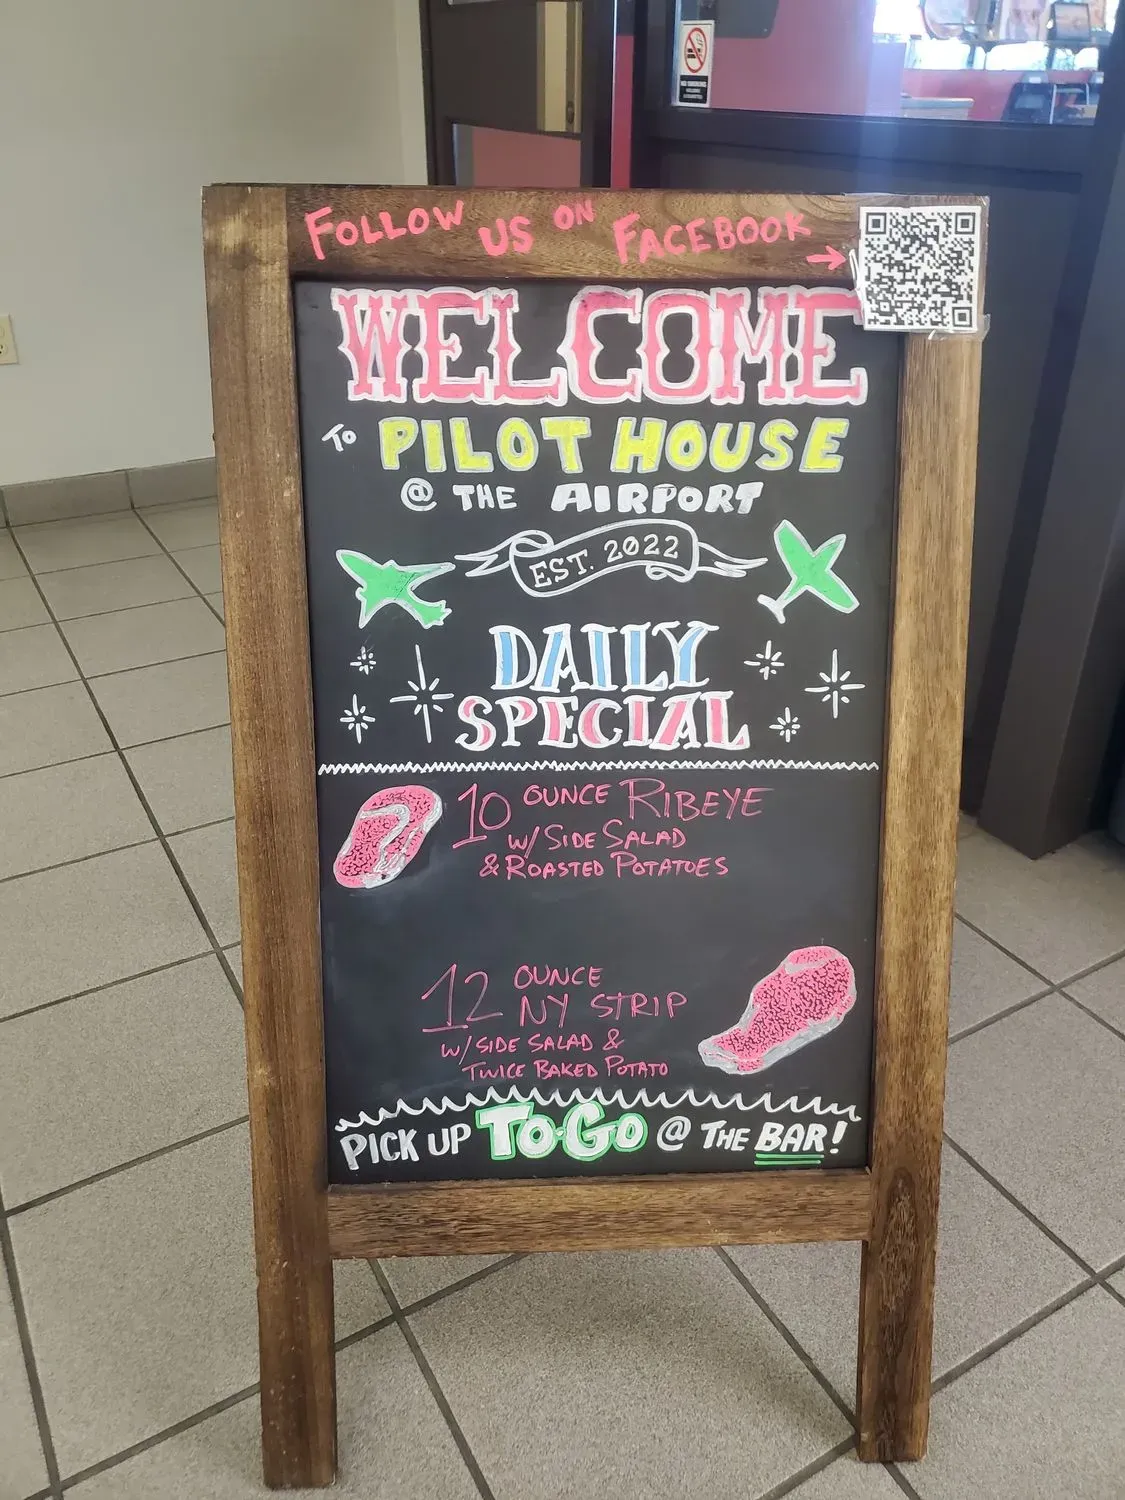 FOLLOW US ON FACEBOOK →
WELCOME
TO PILOT HOUSE
@ THE AIRPORT
EST. 2022
DAILY
SPECIAL
10 OUNCE RIBEYE
W/ SIDE SALAD
& ROASTED POTATOES
12 OUNCE
NY STRIP
W/ SIDE SALAD &
TWICE BAKED POTATO
PICK UP TO-GO @ THE BAR!